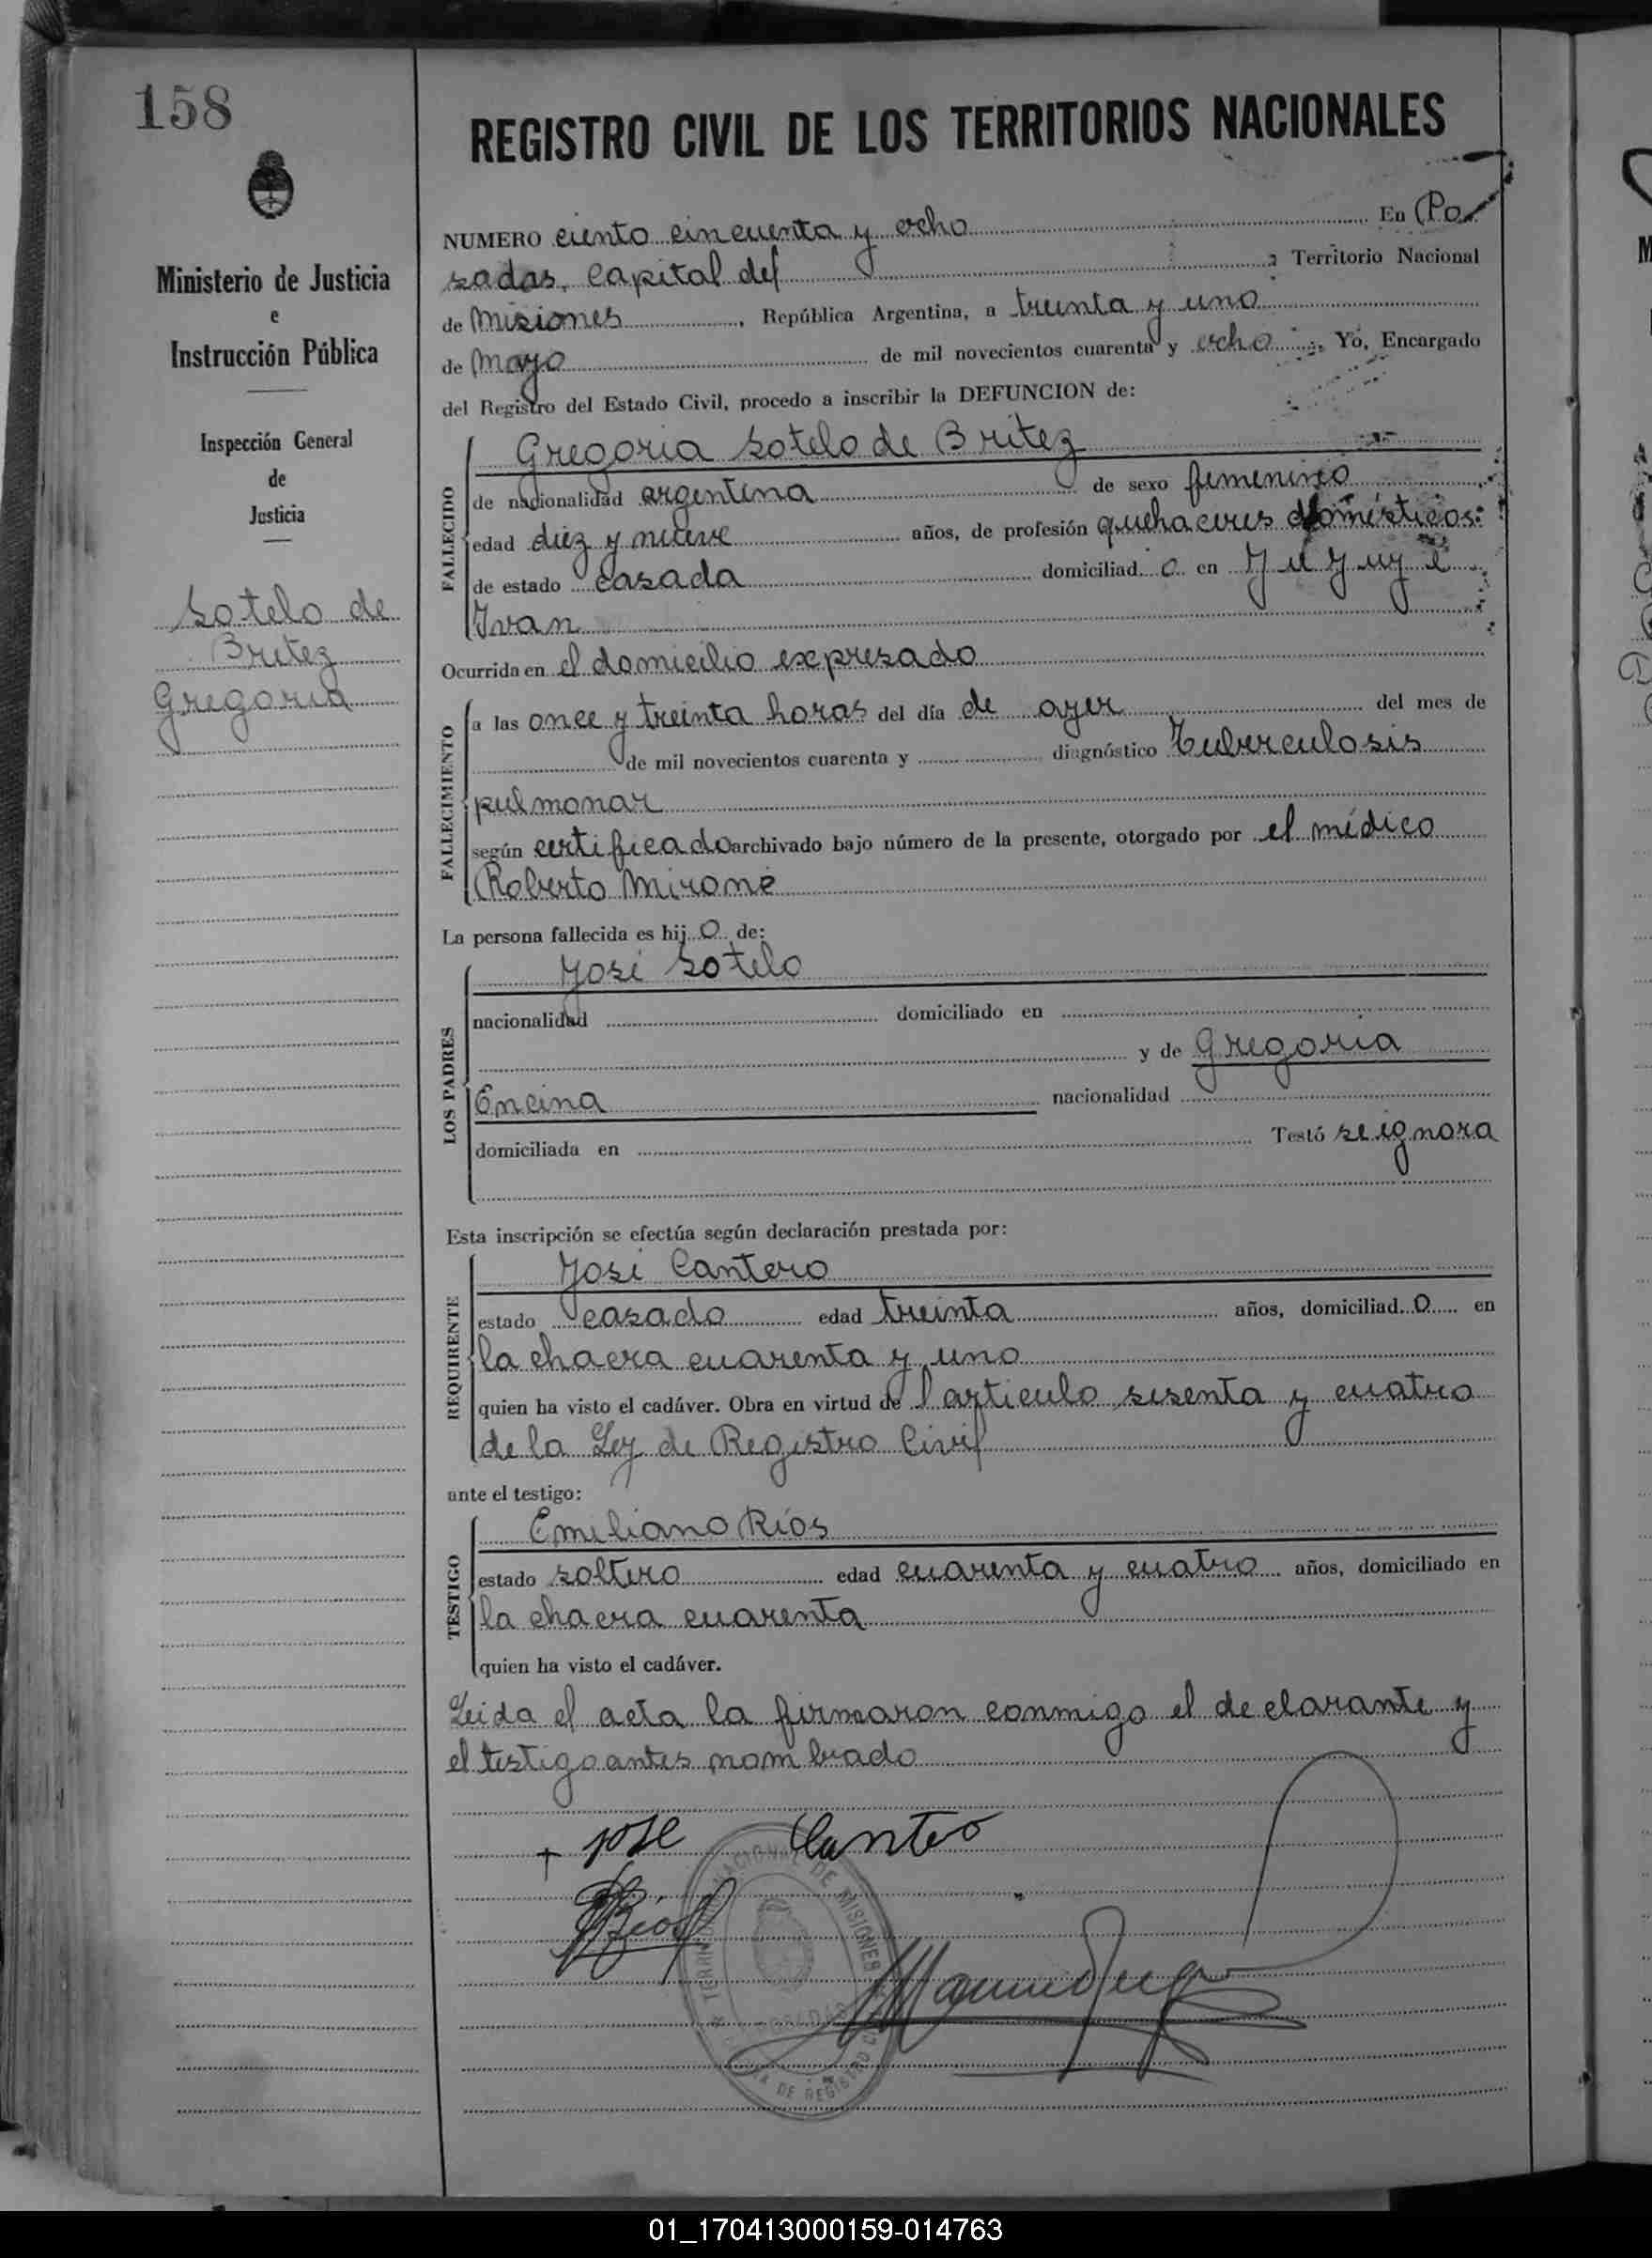 158
Ministerio de Justicia
e
Instrucción Pública
Inspección General
de
Justicia
Sotelo de
Britez
Gregoria
REGISTRO CIVIL DE LOS TERRITORIOS NACIONALES
NUMERO ciento cincuenta y ocho En Po
sadas, Capital del , Territorio Nacional
de Misiones, República Argentina, a treinta y uno
de Mayo de mil novecientos cuarenta y ocho, Yo, Encargado
del Registro del Estado Civil, procedo a inscribir la DEFUNCION de:
FALLECIDO
Gregoria Sotelo de Britez
de nacionalidad argentina de sexo femenino
edad diez y nueve años, de profesión quehaceres domésticos
de estado casada domiciliado en Jujuy é
Ivan
Ocurrida en el domicilio expresado
FALLECIMIENTO
a las once y treinta horas del día de ayer del mes de
de mil novecientos cuarenta y diagnóstico Tuberculosis
pulmonar
según certificado archivado bajo número de la presente, otorgado por el médico
Roberto Mirone
La persona fallecida es hijo de:
LOS PADRES
José Sotelo
nacionalidad domiciliado en
y de Gregoria
Encina nacionalidad
domiciliada en Testó se ignora
Esta inscripción se efectúa según declaración prestada por:
REQUIRENTE
José Cantero
estado casado edad treinta años, domiciliado en
la chacra cuarenta y uno
quien ha visto el cadáver. Obra en virtud del articulo sesenta y cuatro
de la Ley de Registro Civil
ante el testigo:
TESTIGO
Emiliano Ríos
estado soltero edad cuarenta y cuatro años, domiciliado en
la chacra cuarenta
quien ha visto el cadáver.
Leida el acta la firmaron conmigo el declarante y
el testigo antes nombrado
+ José Cantero
Ríos
01_170413000159-014763